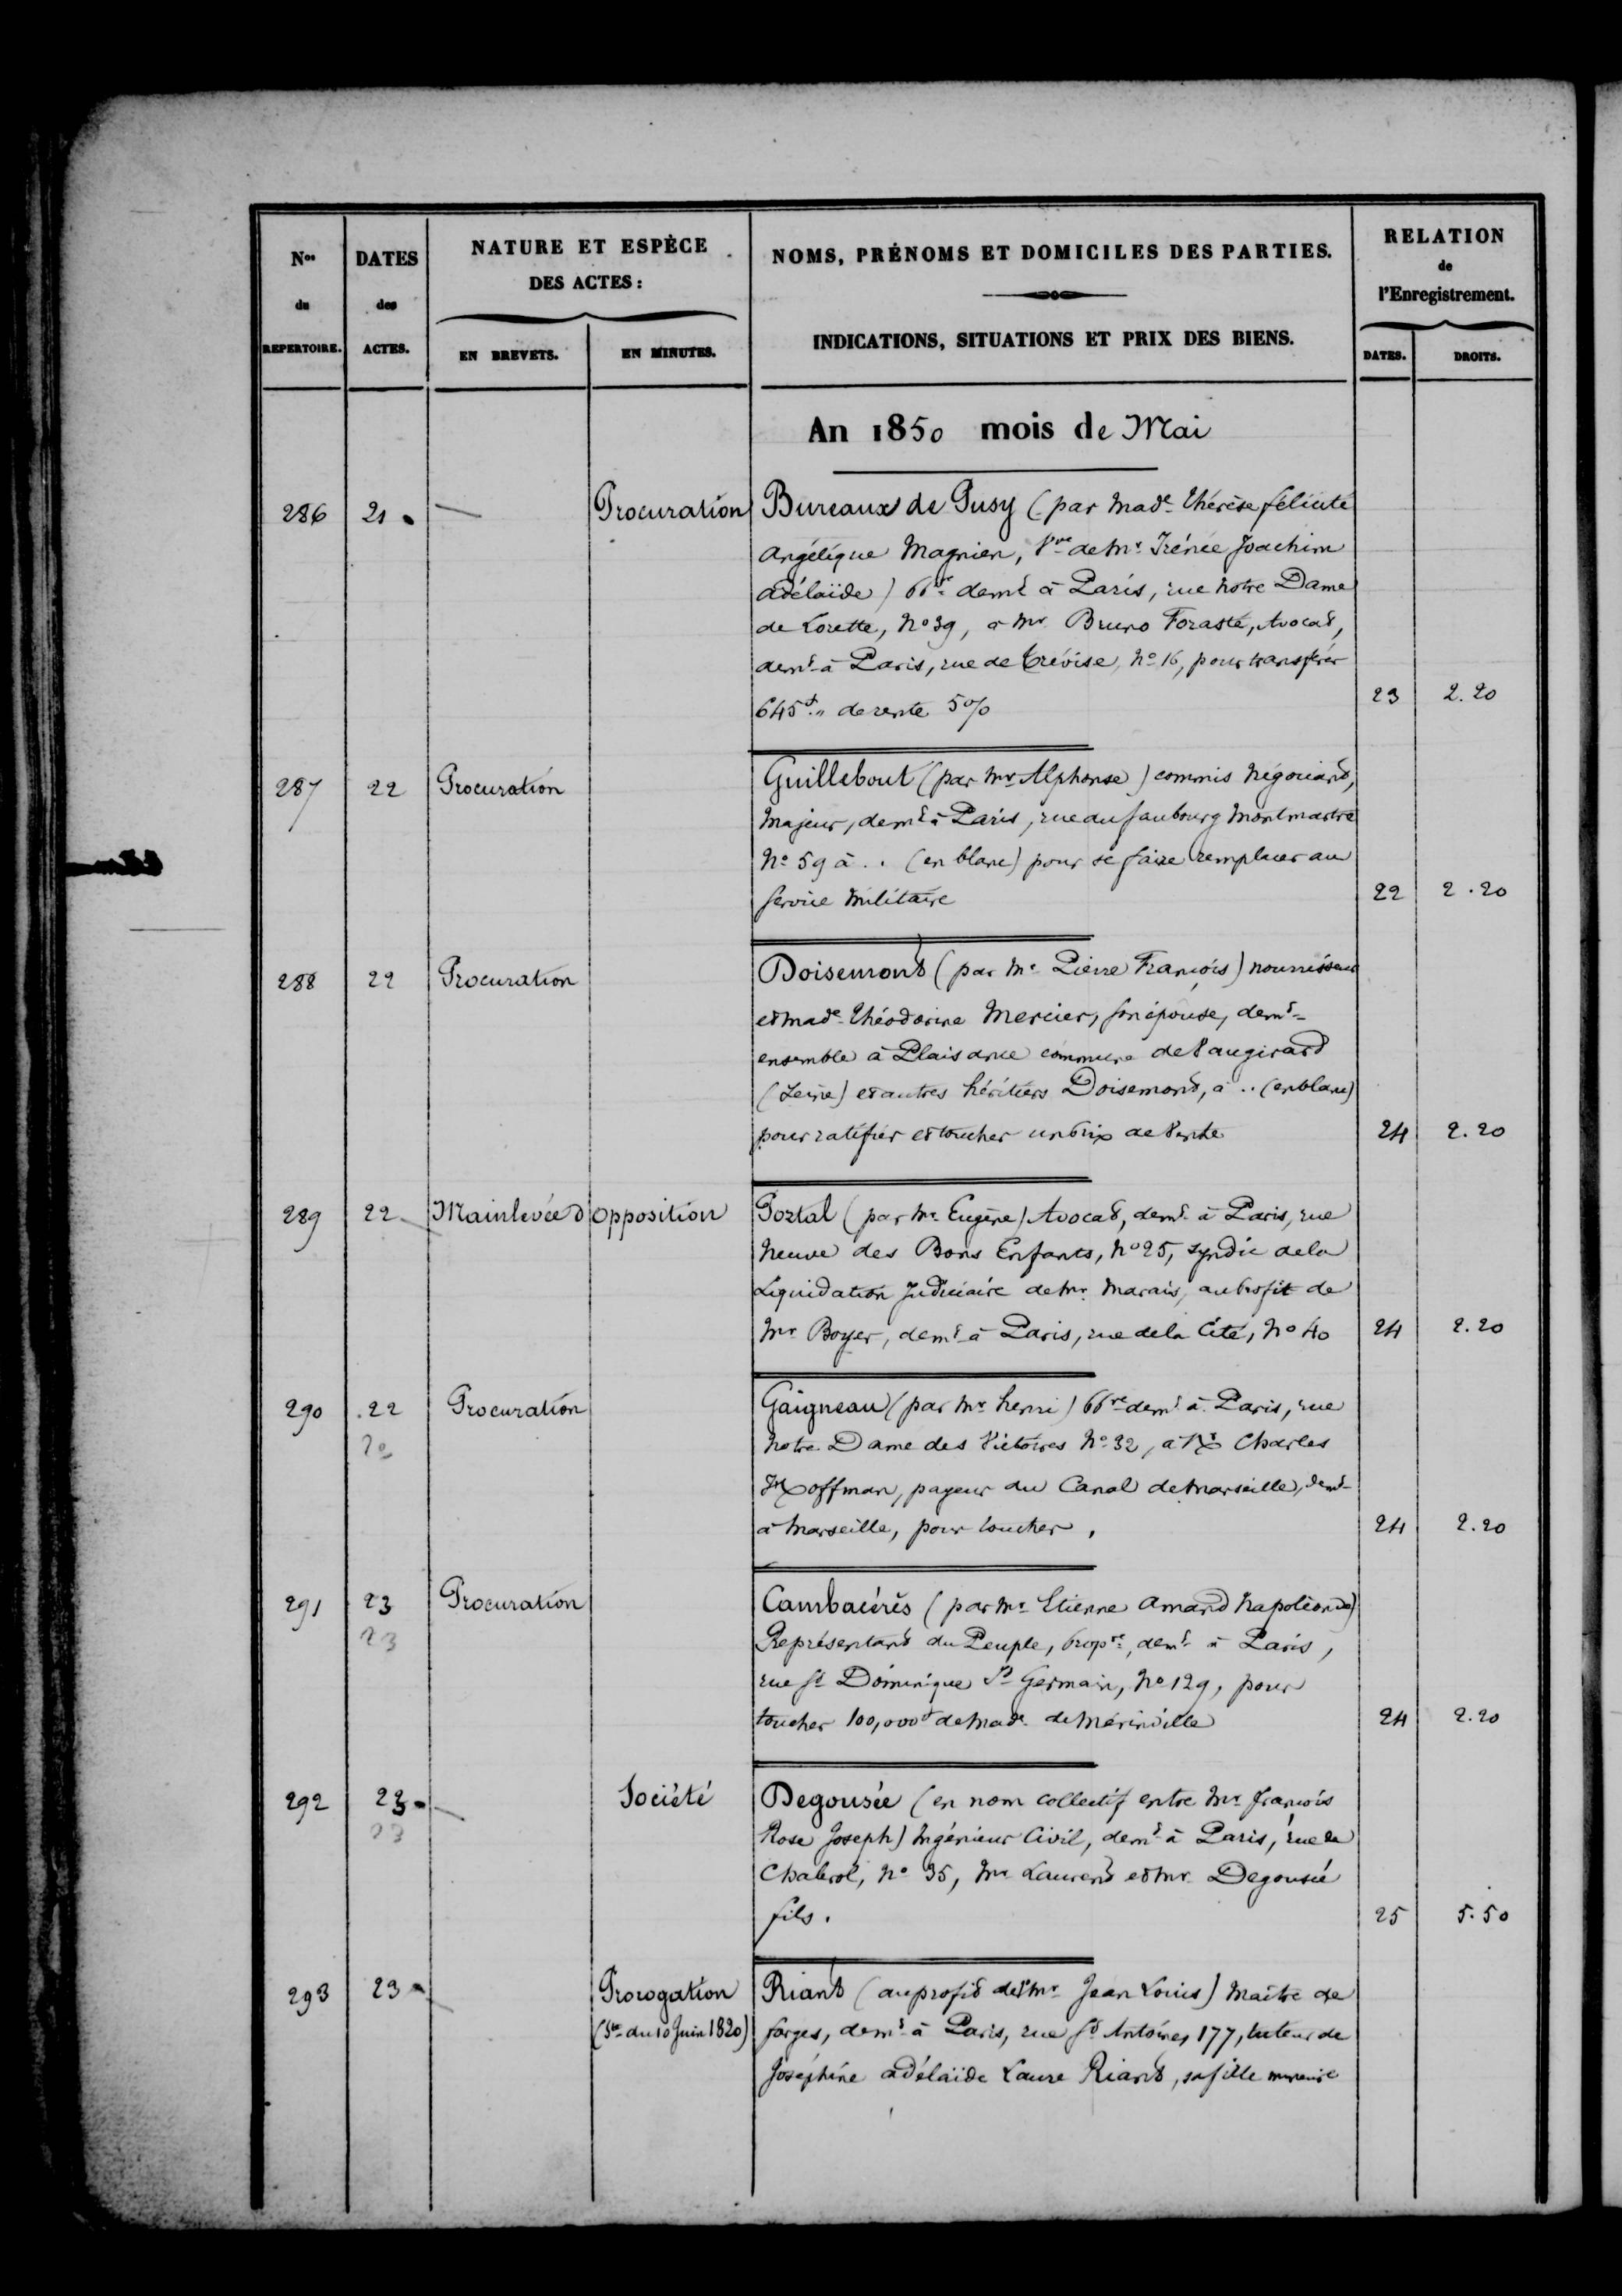 Nos du REPERTOIRE.
DATES des ACTES.
NATURE ET ESPÈCE DES ACTES :
EN BREVETS.
EN MINUTES.
NOMS, PRÉNOMS ET DOMICILES DES PARTIES.
INDICATIONS, SITUATIONS ET PRIX DES BIENS.
RELATION de l'Enregistrement.
DATES.
DROITS.
An 1850 mois de Mai
286 21 — Procuration Bureaux de Pusy (par Made Thérèse félicité
Angélique Magnien, Vve de Mr Irénée Joachim
adélaïde) demt à Paris, rue Notre Dame
de Lorette, No 39, à Mr Bruno Forasté, Avocat,
demt à Paris, rue de Trévise, No 16, pour transférer
645f " de rente 5% 23 2.20
287 22 Procuration Guillebout (par Mr Alphonse) commis Négociant,
Majeur, demt à Paris, rue du faubourg Montmartre
No 59 à .. (en blanc) pour se faire remplacer au
service Militaire 22 2.20
288 22 Procuration Doisemont (par Mr Pierre François) nourrisseur
et Made Théodorine Mercier, son épouse, demt
ensemble à Plaisance commune de Vaugirard
(Seine) et autres héritiers Doisemont, à .. (en blanc)
pour ratifier et toucher un prix de Vente 24 2.20
289 22 Mainlevée d'opposition Portal (par Mr Eugène) Avocat, demt à Paris, rue
Neuve des Bons Enfants, No 25, syndic de la
Liquidation Judiciaire de Mr Marais, au profit de
Mr Boyer, demt à Paris, rue de la Cité, No 40 24 2.20
290 22 Procuration Gaigneau (par Mr henri) demt à Paris, rue
Notre Dame des Victoires No 32, à Mr Charles
Hoffman, payeur du Canal de Marseille, demt
à Marseille, pour toucher. 24 2.20
291 23 Procuration Cambacérès (par Mr Etienne Amand Napoléon de)
23
Représentant du Peuple, propre, demt à Paris,
rue St Dominique St Germain, No 129, pour
toucher 100,000f de Made de Mérinville 24 2.20
292 23 Société Degousée (en nom collectif entre Mr françois
23
Rose Joseph) Ingénieur Civil, demt à Paris, rue de
Chabrol, No 35, Mr Laurent et Mr Degousée
fils. 25 5.50
293 23 Prorogation Riant (au profit de Mr Jean Louis) Maître de
(Ste du 10 Juin 1820) forges, demt à Paris, rue St Antoine, 177, tuteur de
Joséphine adélaïde Laure Riant, sa fille mineure